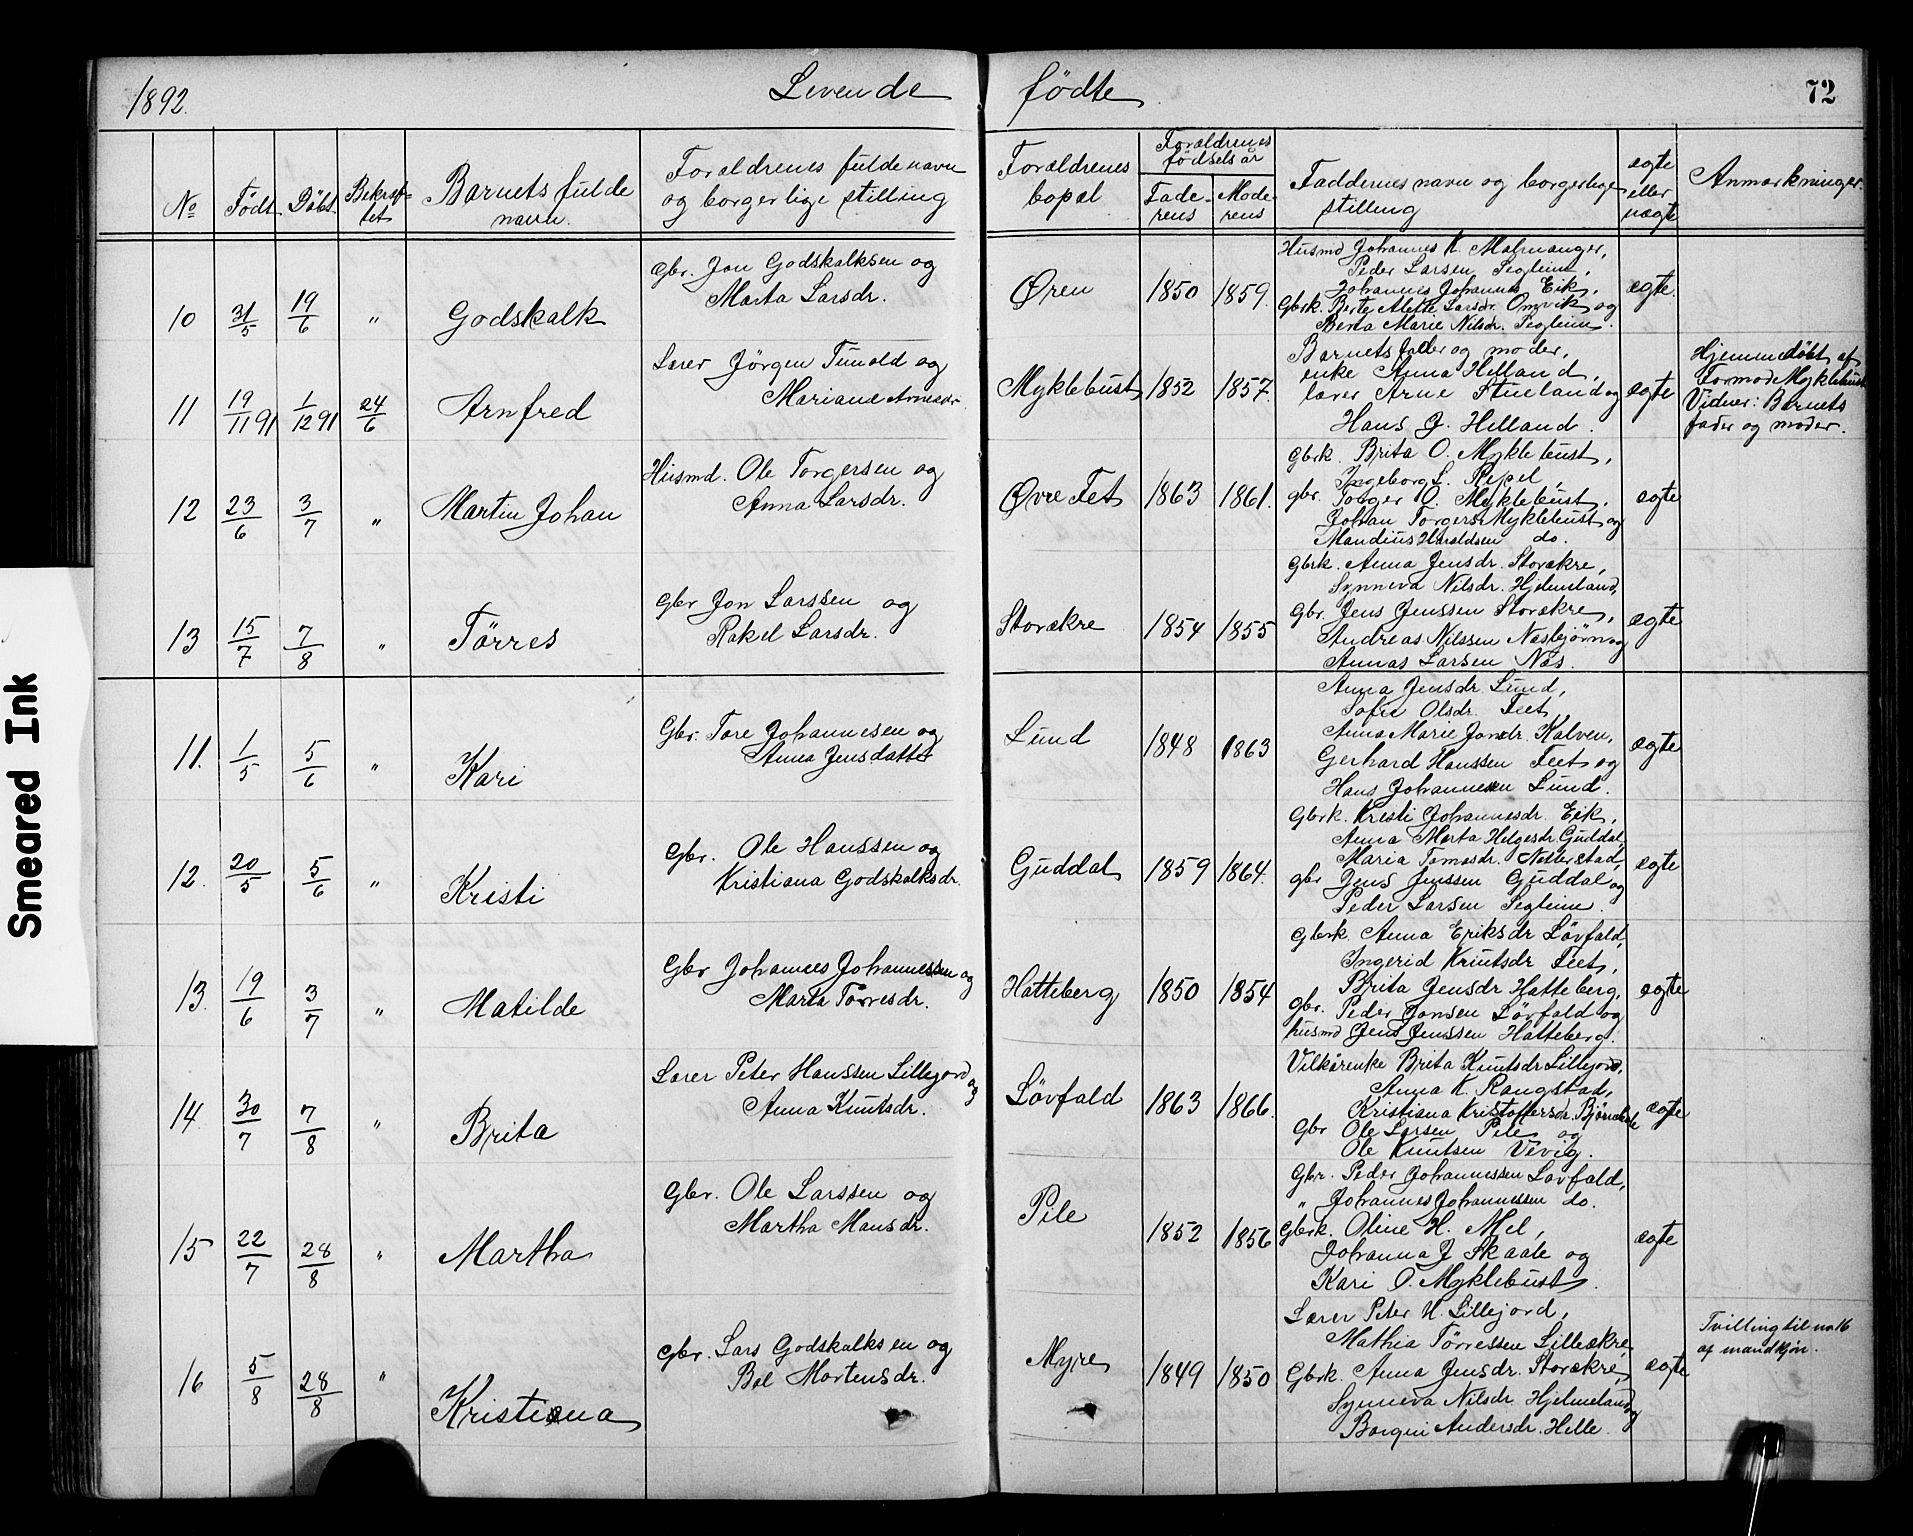 1892. Levende fødte 72
No Født Døbt Bekræf-tet Barnets fulde navn. Forældrenes fulde navn og borgerlige stilling Forældrenes bopæl Forældrenes fødselsår Fade-rens Mode-rens Faddernes navn og borgerlige stilling ægte eller uægte Anmærkninger.
10 31/5 19/6 " Godskalk
gbr. Jon Godskalksen og
Marta Larsdr.
Øren 1850 1859.
Husmd Johannes K. Malmanger,
Peder Larsen Segleim,
Johannes Johannes Eik,
Gbrk. Berte Alette Larsdr. Omvik og
Berta Marie Nilsdr. Segleim.
ægte.
11 19/11 91 1/12 91 24/6 Arnfred
Lærer Jörgen Tunold og
Mariane Arnesdr.
Myklebust 1852 1857.
Barnets fader og moder,
enke Anna Helland,
lærer Arne Stueland og
Hans J. Helland.
ægte
Hjemmedøbt af
Formod Myklebust
Vidner: Barnets
fader og moder.
12 23/6 3/7 " Martin Johan
Husmd. Ole Torgersen og
Anna Larsdr.
Øvre Fet 1863 1861.
Gbrk. Brita O. Myklebust,
Ingeborg L. Repel,
gbr. Torger O. Myklebust,
Johan Torgers Myklebust og
Mandius Haraldsen do.
ægte
13 15/7 7/8 " Tørres
Gbr Jon Larssen og
Rakel Larsdr.
Storækre 1854 1855
Gbrk. Anna Jensdr. Storækre,
Synneva Nilsdr. Hjelmeland,
Gbr. Jens Jenssen Storækre,
Andreas Nilssen Næsbjørn og
Annas Larsen Næs.
ægte
11. 1/5 5/6 " Kari
Gbr. Tore Johannesen og
Anna Jensdatter
Lund 1848 1863
Anna Jensdr. Lund,
Sofie Olsdr. Feet,
Anna Marie Jonsdr. Kalven,
Gerhard Hanssen Feet og
Hans Johannesen Lund.
ægte
12. 20/5 5/6 " Kristi
Gbr. Ole Hanssen og
Kristiana Godskalksdr.
Guddal 1859 1864.
Gbrk. Kristi Johannesdr. Eik,
Anna Marta Helgesdr. Guddal,
Maria Tomasdr. Nellerstad,
gbr Jens Jenssen Guddal og
Peder Larsen Segleim.
ægte
13. 19/6 3/7 " Matilde
Gbr Johannes Johannessen og
Marta Tørresdr.
Hatteberg 1850 1854
Gbrk. Anna Eriksdr Lövfald,
Ingerid Knutsdr Feet,
Brita Jensdr Hatteberg,
gbr. Peder Jonsen Lövfald og
husmd Jens Jenssen Hatteberg.
ægte
14. 30/7 7/8 " Brita
Lærer Peter Hanssen Lillejord og
Anna Knutsdr.
Lövfald 1863 1866.
Vilkårenke Brita Knutsdr Lillejord,
Anna K. Rangstad,
Kristiana Kristoffersdr.
Gbr Ole Larsen Pile og
Ole Knutsen Vevig.
ægte
15 22/7 28/8 " Martha
Gbr. Ole Larssen og
Martha Mansdr.
Pile 1852 1856
Gbr. Peder Johannessen Lövfald,
" Johannes Johannessen do.
Gbrk. Oline H. Mel,
Johanna J Skaale og
Kari O. Myklebust.
ægte
16 5/8 28/8 " Kristiana
Gbr. Lars Godskalksen og
Bol Mortensdr.
Myre 1849 1850
Lærer Peter H. Lillejord,
Mathia Tørressen Lilleækre,
Gbrk. Anna Jensdr. Storækre,
Synneva Nilsdr. Hjelmeland og
Borgni Andersdr. Helle.
ægte
Tvilling til no 16
af mandkjön.
Smeared Ink